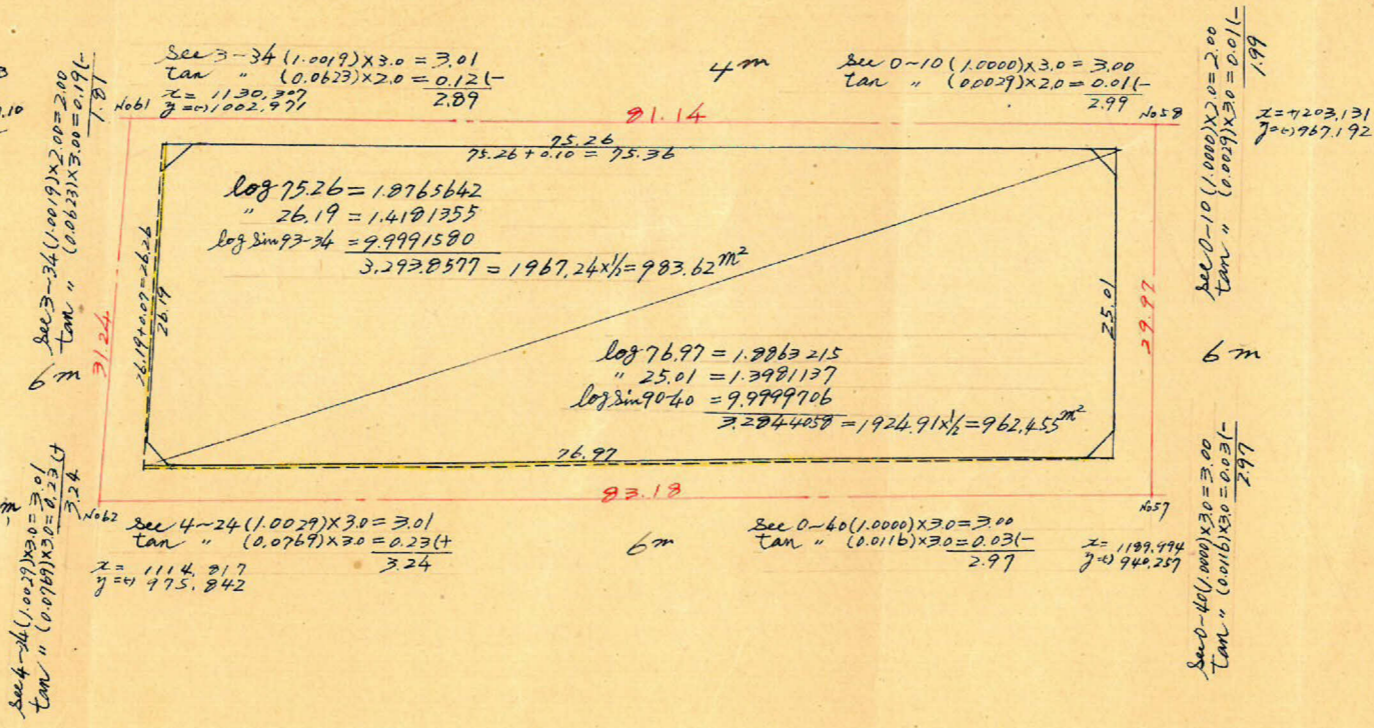 sec 3-34 (1.0019)×3.0 = 3.01
tan 〃 (0.0623)×2.0 = 0.12(-
2.89
x= 1130,307
y=(-)1002,971
No61
4m
sec 0-10 (1.0000)×3.0 = 3.00
tan 〃 (0.0029)×2.0 = 0.01(-
2.99
No58
x=1203,131
y=(-)967,192
81.14
75.26
75.26+0.10 = 75.36
sec 3-34 (1.0019)×2.00=2.00
tan 〃 (0.0623)×3.00=0.19(-
1.81
sec 0-10 (1.0000)×2.0=2.00
tan 〃 (0.0029)×3.0=0.01(-
1.99
log 75.26 = 1.8765642
〃 26.19 = 1.4181355
log sin 93-34 = 9.9991580
3.2938577 = 1967.24×1/2=983.62m²
26.19+0.07=26.26
26.19
31.24
6m
25.01
29.97
6m
log 76.97 = 1.8863215
〃 25.01 = 1.3981137
log sin 90-40 = 9.9999706
3.2844058 = 1924.91×1/2=962.455m²
76.97
83.18
No62
sec 4-24 (1.0029)×3.0 = 3.01
tan 〃 (0.0769)×3.0 = 0.23(+
3.24
x= 1114,817
y=(-) 975,842
6m
sec 0-40 (1.0000)×3.0 = 3.00
tan 〃 (0.0116)×3.0 = 0.03(-
2.97
No57
x= 1189,994
y=(-) 940,257
sec 4-24 (1.0029)×3.0=3.01
tan 〃 (0.0769)×3.0=0.23(+
3.24
sec 0-40 (1.0000)×3.0=3.00
tan 〃 (0.0116)×3.0=0.03(-
2.97